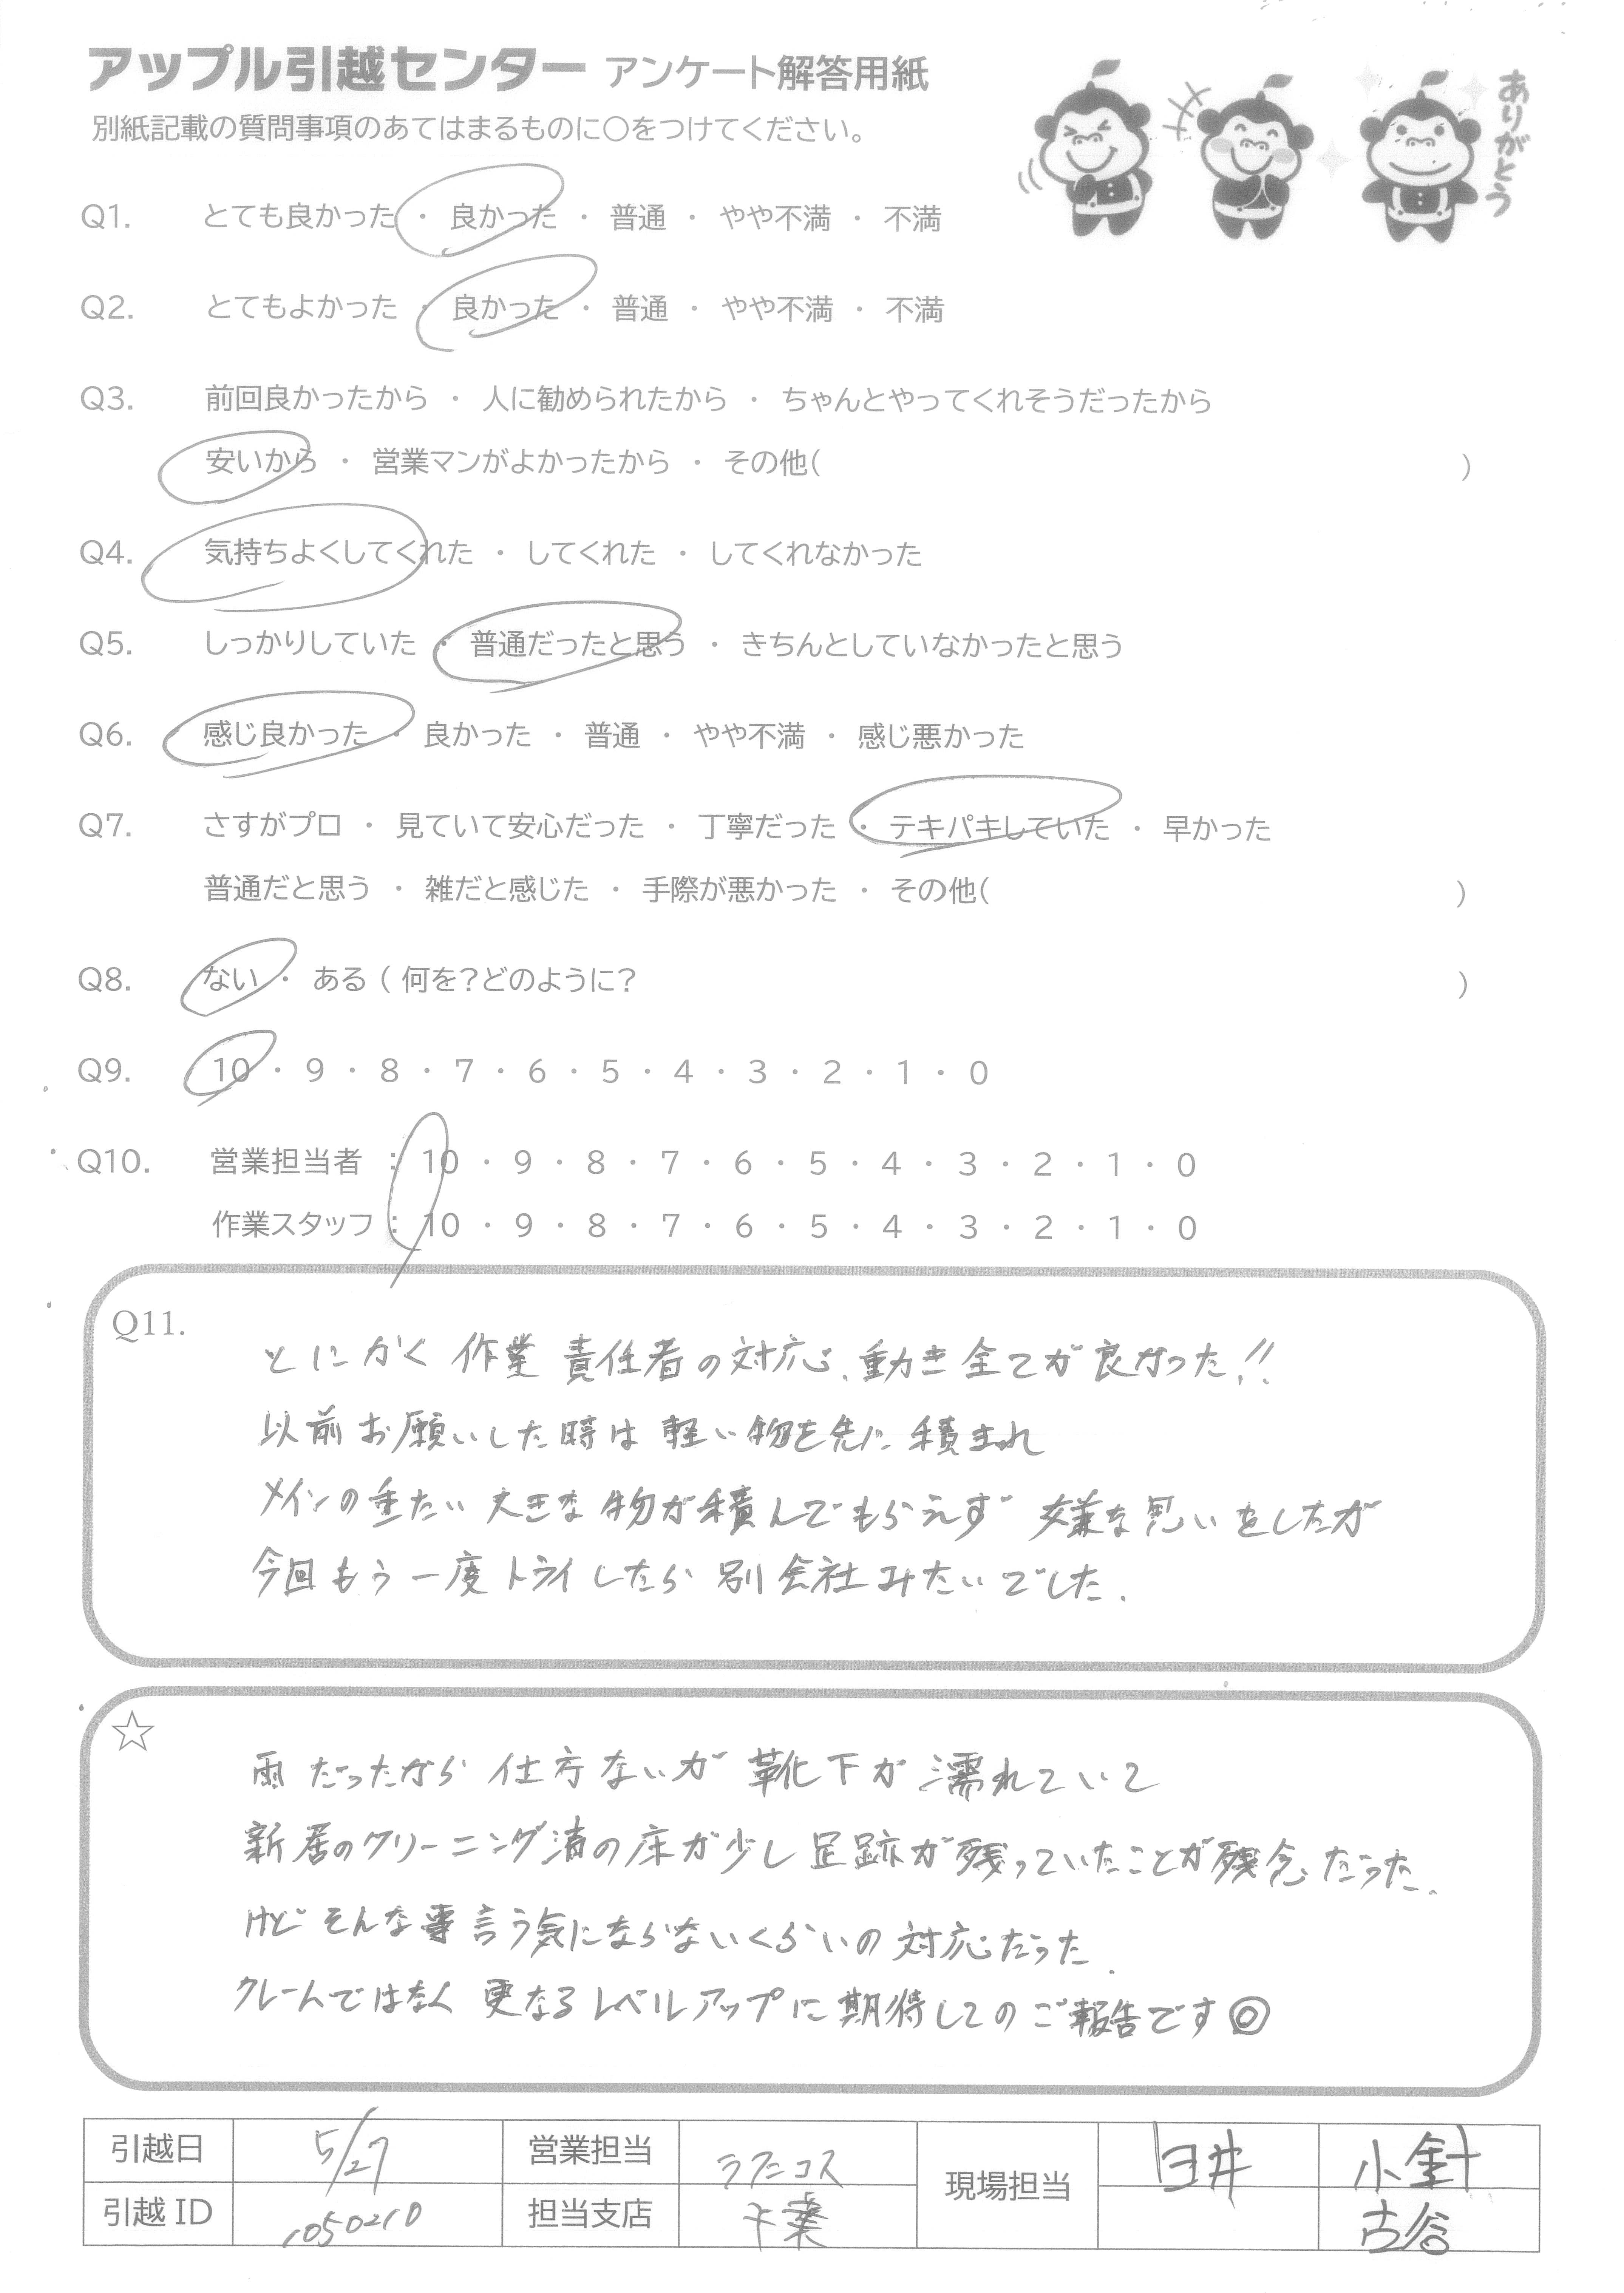 アップル引越センター アンケート解答用紙
別紙記載の質問事項のあてはまるものに〇をつけてください。
ありがとう
Q1. とても良かった ・ 良かった ・ 普通 ・ やや不満 ・ 不満
Q2. とてもよかった ・ 良かった ・ 普通 ・ やや不満 ・ 不満
Q3. 前回良かったから ・ 人に勧められたから ・ ちゃんとやってくれそうだったから
安いから ・ 営業マンがよかったから ・ その他( )
Q4. 気持ちよくしてくれた ・ してくれた ・ してくれなかった
Q5. しっかりしていた ・ 普通だったと思う ・ きちんとしていなかったと思う
Q6. 感じ良かった ・ 良かった ・ 普通 ・ やや不満 ・ 感じ悪かった
Q7. さすがプロ ・ 見ていて安心だった ・ 丁寧だった ・ テキパキしていた ・ 早かった
普通だと思う ・ 雑だと感じた ・ 手際が悪かった ・ その他( )
Q8. ない ・ ある ( 何を?どのように? )
Q9. 10 ・ 9 ・ 8 ・ 7 ・ 6 ・ 5 ・ 4 ・ 3 ・ 2 ・ 1 ・ 0
Q10. 営業担当者 : 10 ・ 9 ・ 8 ・ 7 ・ 6 ・ 5 ・ 4 ・ 3 ・ 2 ・ 1 ・ 0
作業スタッフ : 10 ・ 9 ・ 8 ・ 7 ・ 6 ・ 5 ・ 4 ・ 3 ・ 2 ・ 1 ・ 0
Q11.
とにかく 作業 責任者の対応、動き全てが良かった!!
以前お願いした時は 軽い物を先に積まれ
メインの重たい大きな物が積んでもらえず 嫌な思いをしたが
今回もう一度トライしたら 別会社みたいでした.
☆
雨だったから 仕方ないが 靴下が濡れていて
新居のクリーニング済の床が少し足跡が残っていたことが残念だった.
けど そんな事言う気にならないくらいの対応だった.
クレームではなく 更なるレベルアップに期待してのご報告です◎
引越日 5/27 営業担当 現場担当 臼井 小針
引越ID 1050210 担当支店 千葉 古谷